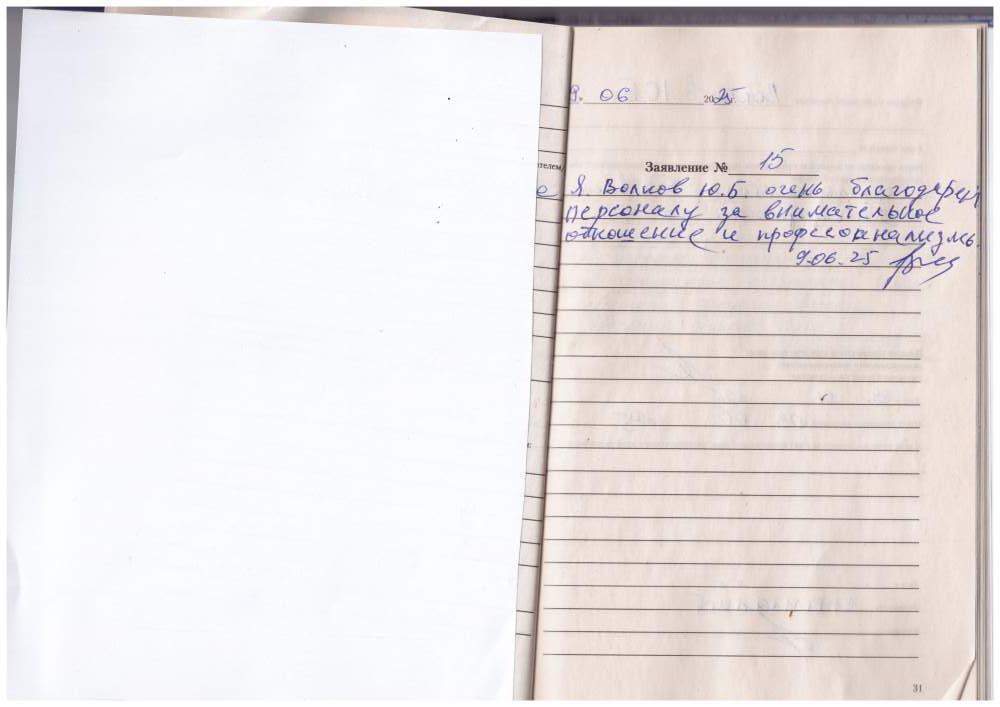 9. 06 2025г.
ателем,
Заявление № 15
Я. Волков Ю.Б очень благодарен
персоналу за внимательное
отношение и профессионализмь.
9.06.25
с
31